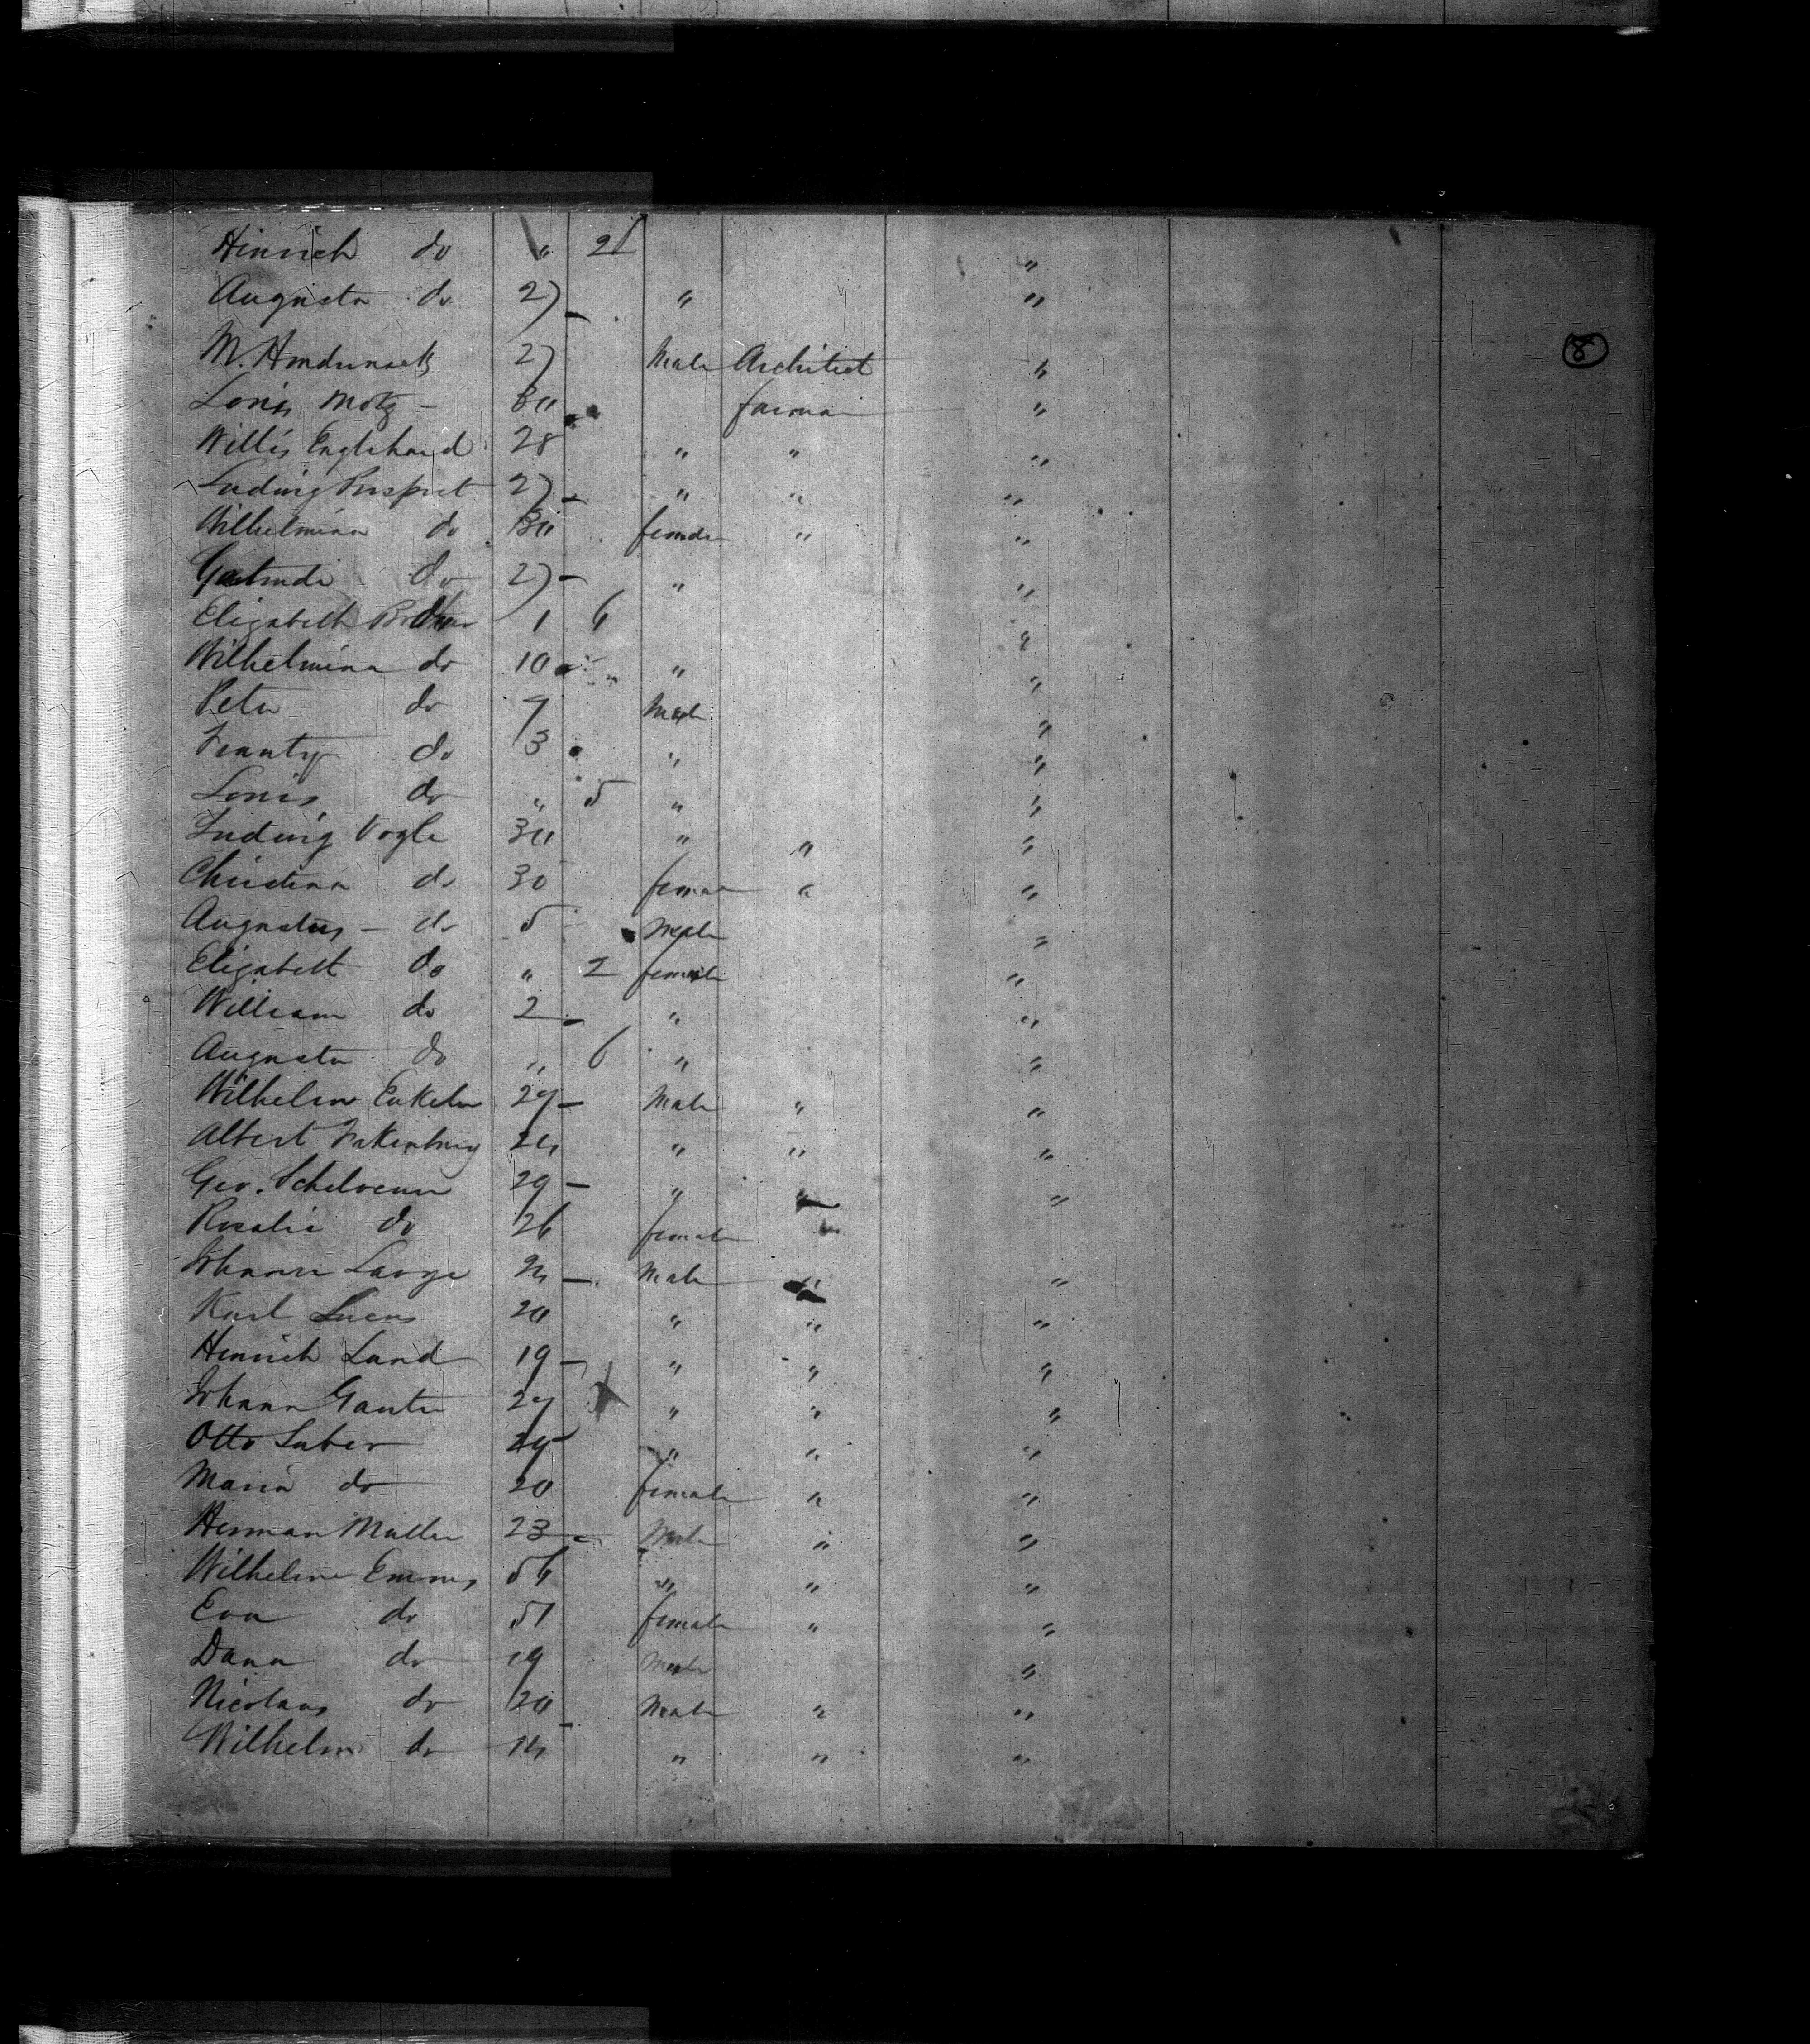 Hinrich do " 21 "
Augusta do 27 " "
M. 27 Male Architect "
Louis Motz 30 farmer "
Willis Englehard 28 " " "
Ludwig 27 " " "
Wilhelmina do 30 female " "
Gertrude do 27 " "
Elizabeth 1 6 "
Wilhelmina do 10 " " "
Peter do 9 Male "
do 3 " "
Louis do " 5 " "
Ludwig Vogle 30 " " "
Christina do 30 female " "
Augustus do 5 Male "
Elizabeth do " 2 female "
William do 2 " "
Augusta do " 6 " "
Wilhelm 29 Male " "
Albert 24 " " "
Geo. 29 " " "
Rosalie do 26 female "
Johann Lange 24 Male " "
Karl Lucas 20 " " "
Heinrich Land 19 " " "
Johann Ganter 29 " " "
Otto Luber 29 " " "
Maria do 20 female " "
Herman Muller 23 Male " "
Wilhelm Emmes 56 " " "
Eva do 51 female " "
Dana do 19 Male "
Nicolaus do 20 Male " "
Wilhelm do 14 " " "
8